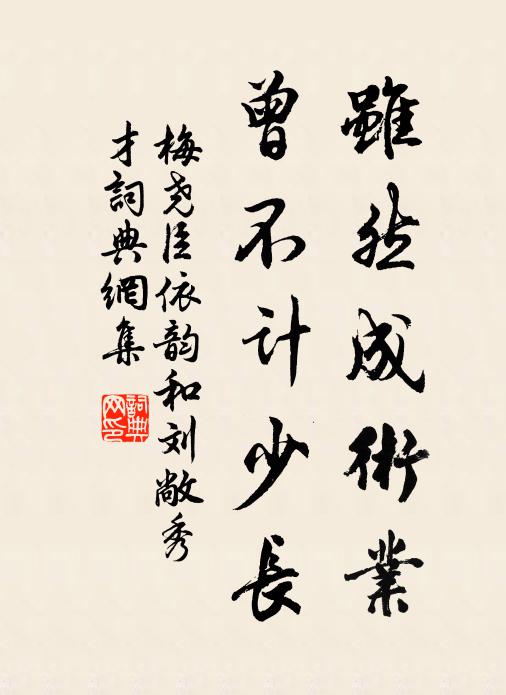 雖然成術業
曾不计少長
梅尧臣依韵和刘敞秀
才詞典網集
詞典网印